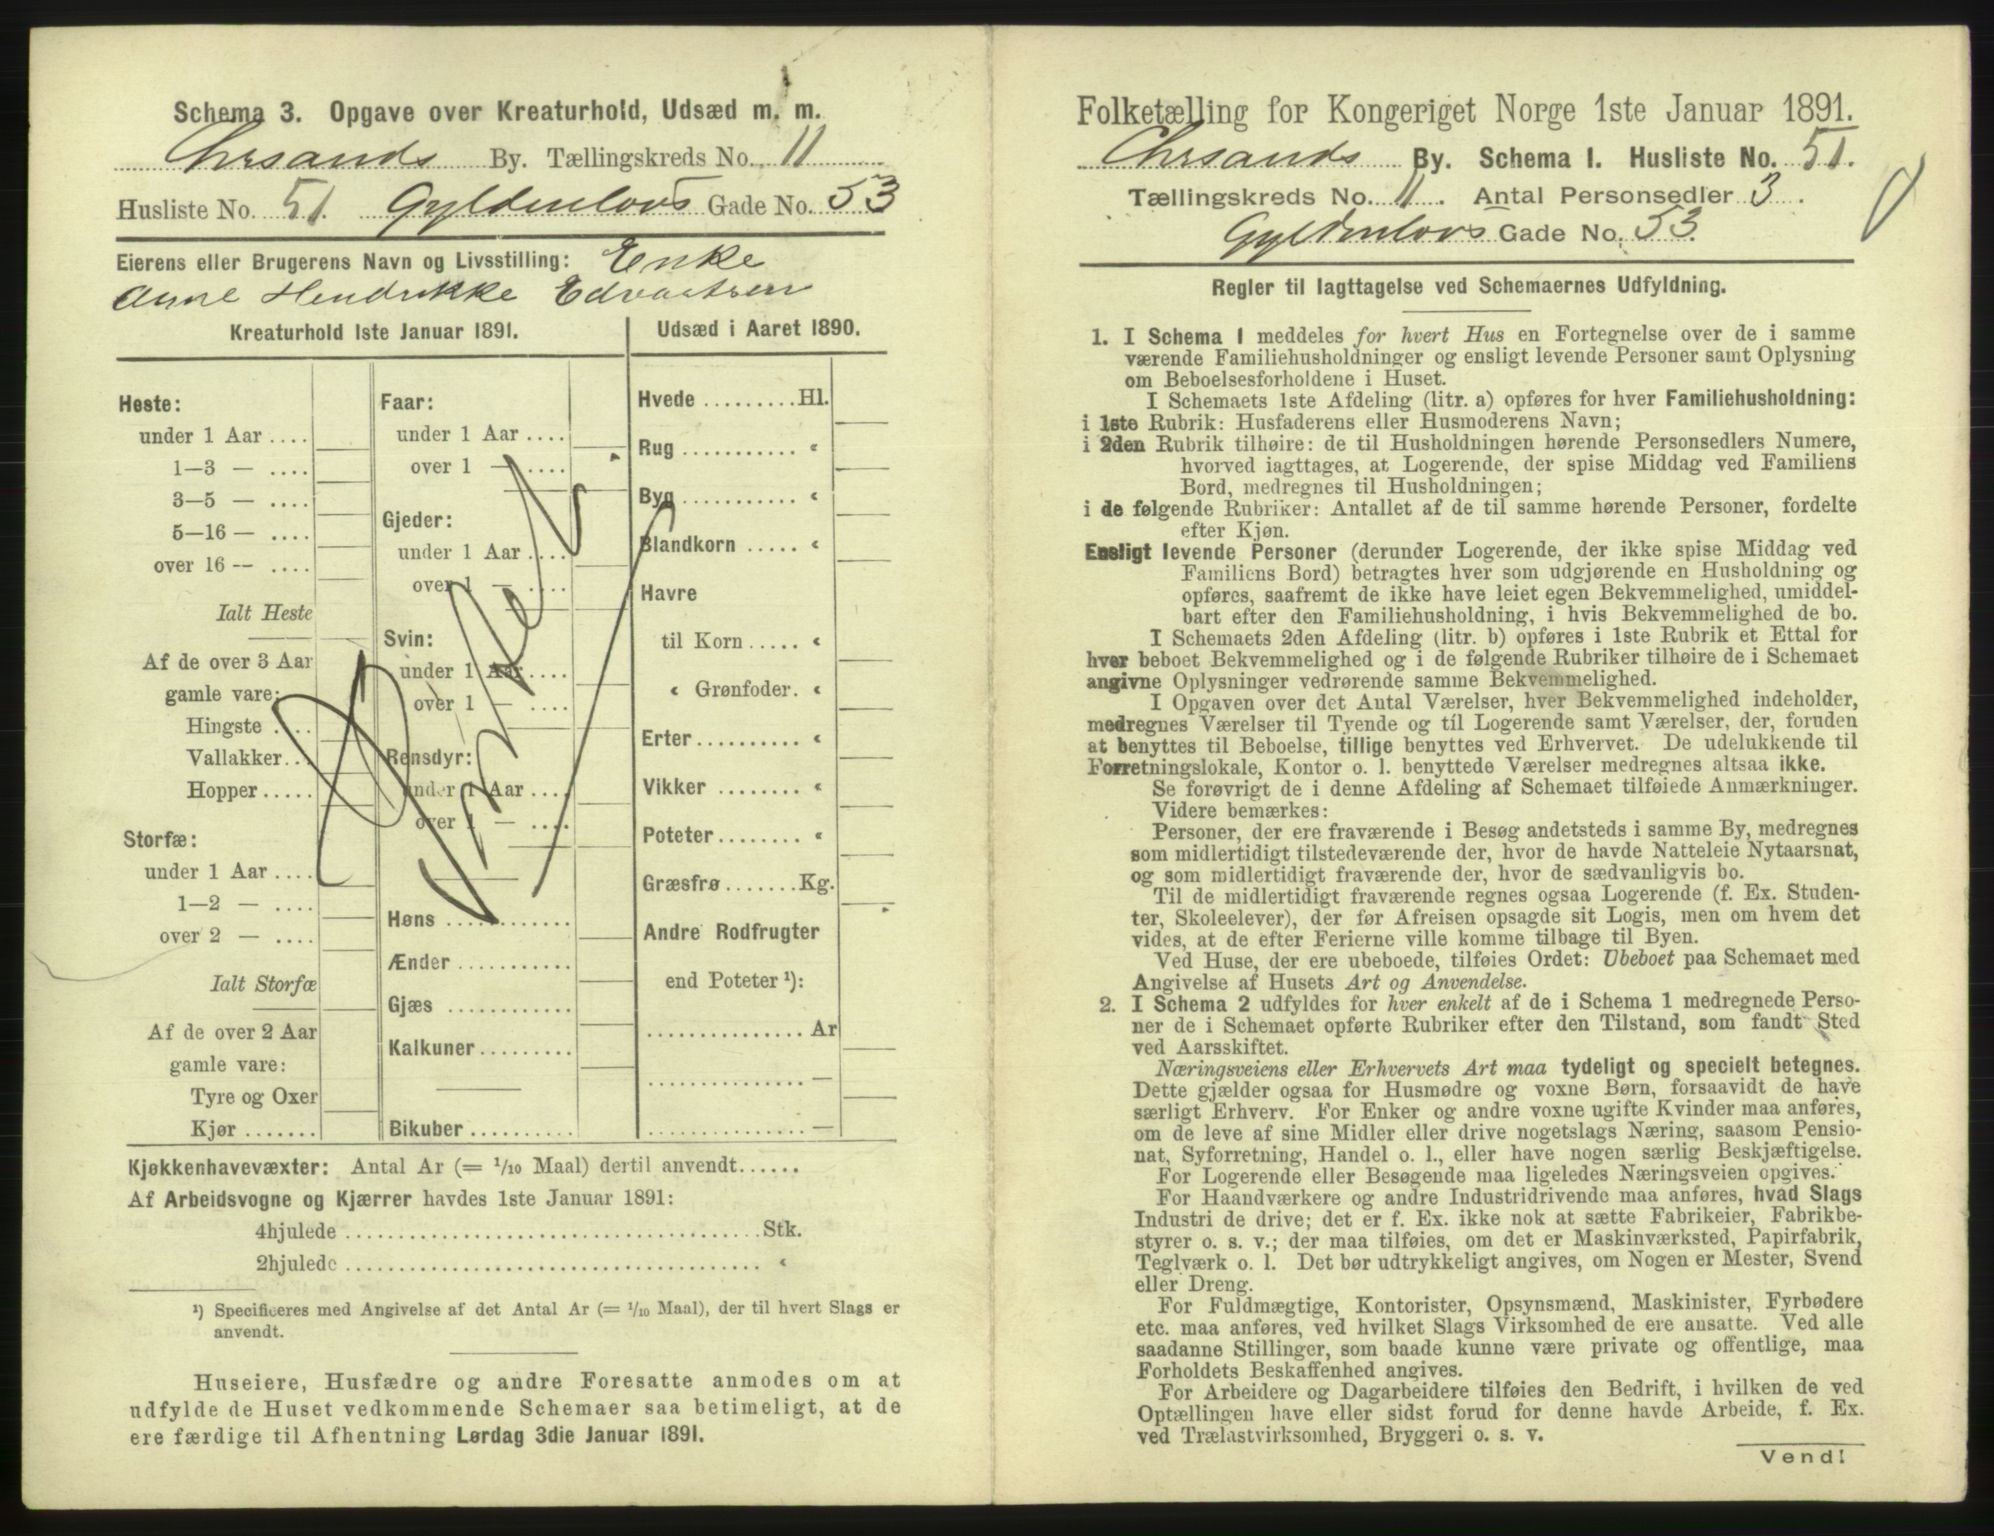 Schema 3. Opgave over Kreaturhold, Udsæd m. m.
Chrsands By. Tællingskreds No. 11
Husliste No. 51. Gyldenlovs Gade No. 53
Eierens eller Brugerens Navn og Livsstilling: Enke
Anne Hendrikke Edvartsen
Kreaturhold 1ste Januar 1891.
Heste:
under 1 Aar ....
1—3 — ....
3—5 — ....
5—16 — ....
over 16 — ....
Ialt Heste
Af de over 3 Aar
gamle vare:
Hingste ....
Vallakker...
Hopper.....
Storfæ:
under 1 Aar ....
1—2 — ....
over 2 — ....
Ialt Storfæ
Af de over 2 Aar
gamle vare:
Tyre og Oxer
Kjør .......
Faar:
under 1 Aar ....
over 1 — ....
Gjeder:
under 1 Aar ....
over 1 — ....
Svin:
under 1 Aar ....
over 1 — ....
Rensdyr:
under 1 Aar ....
over 1 — ....
Høns ...........
Ænder ..........
Gjæs ...........
Kalkuner........
Bikuber .........
Udsæd i Aaret 1890.
Hvede ......... Hl.
Rug ........... «
Byg ........... «
Blandkorn ..... «
Havre
til Korn ..... «
« Grønfoder. «
Erter.......... «
Vikker ........ «
Poteter........ «
Græsfrø ....... Kg.
Andre Rodfrugter
end Poteter ¹):
............... Ar
............... —
............... —
Kjøkkenhavevæxter: Antal Ar (= 1/10 Maal) dertil anvendt......
Af Arbeidsvogne og Kjærrer havdes 1ste Januar 1891:
4hjulede ...................................... Stk.
2hjulede ...................................... «
¹) Specificeres med Angivelse af det Antal Ar (= 1/10 Maal), der til hvert Slags er
anvendt.
Huseiere, Husfædre og andre Foresatte anmodes om at
udfylde de Huset vedkommende Schemaer saa betimeligt, at de
ere færdige til Afhentning Lørdag 3die Januar 1891.
Folketælling for Kongeriget Norge 1ste Januar 1891.
Chrsands By. Schema I. Husliste No. 51.
Tællingskreds No. 11. Antal Personsedler 3.
Gyldenlovs Gade No. 53.
Regler til Iagttagelse ved Schemaernes Udfyldning.
1. I Schema 1 meddeles for hvert Hus en Fortegnelse over de i samme
værende Familiehusholdninger og ensligt levende Personer samt Oplysning
om Beboelsesforholdene i Huset.
I Schemaets 1ste Afdeling (litr. a) opføres for hver Familiehusholdning:
i 1ste Rubrik: Husfaderens eller Husmoderens Navn;
i 2den Rubrik tilhøire: de til Husholdningen hørende Personsedlers Numere,
hvorved iagttages, at Logerende, der spise Middag ved Familiens
Bord, medregnes til Husholdningen;
i de følgende Rubriker: Antallet af de til samme hørende Personer, fordelte
efter Kjøn.
Ensligt levende Personer (derunder Logerende, der ikke spise Middag ved
Familiens Bord) betragtes hver som udgjørende en Husholdning og
opføres, saafremt de ikke have leiet egen Bekvemmelighed, umiddel-
bart efter den Familiehusholdning, i hvis Bekvemmelighed de bo.
I Schemaets 2den Afdeling (litr. b) opføres i 1ste Rubrik et Ettal for
hver beboet Bekvemmelighed og i de følgende Rubriker tilhøire de i Schemaet
angivne Oplysninger vedrørende samme Bekvemmelighed.
I Opgaven over det Antal Værelser, hver Bekvemmelighed indeholder,
medregnes Værelser til Tyende og til Logerende samt Værelser, der, foruden
at benyttes til Beboelse, tillige benyttes ved Erhvervet. De udelukkende til
Forretningslokale, Kontor o. l. benyttede Værelser medregnes altsaa ikke.
Se forøvrigt de i denne Afdeling af Schemaet tilføiede Anmærkninger.
Videre bemærkes:
Personer, der ere fraværende i Besøg andetsteds i samme By, medregnes
som midlertidigt tilstedeværende der, hvor de havde Natteleie Nytaarsnat,
og som midlertidigt fraværende der, hvor de sædvanligvis bo.
Til de midlertidigt fraværende regnes ogsaa Logerende (f. Ex. Studen-
ter, Skoleelever), der før Afreisen opsagde sit Logis, men om hvem det
vides, at de efter Ferierne ville komme tilbage til Byen.
Ved Huse, der ere ubeboede, tilføies Ordet: Ubeboet paa Schemaet med
Angivelse af Husets Art og Anvendelse.
2. I Schema 2 udfyldes for hver enkelt af de i Schema 1 medregnede Perso-
ner de i Schemaet opførte Rubriker efter den Tilstand, som fandt Sted
ved Aarsskiftet.
Næringsveiens eller Erhvervets Art maa tydeligt og specielt betegnes.
Dette gjælder ogsaa for Husmødre og voxne Børn, forsaavidt de have
særligt Erhverv. For Enker og andre voxne ugifte Kvinder maa anføres,
om de leve af sine Midler eller drive nogetslags Næring, saasom Pensio-
nat, Syforretning, Handel o. l., eller have nogen særlig Beskjæftigelse.
For Logerende eller Besøgende maa ligeledes Næringsveien opgives.
For Haandværkere og andre Industridrivende maa anføres, hvad Slags
Industri de drive; det er f. Ex. ikke nok at sætte Fabrikeier, Fabrikbe-
styrer o. s. v.; der maa tilføies, om det er Maskinværksted, Papirfabrik,
Teglværk o. l. Det bør udtrykkeligt angives, om Nogen er Mester, Svend
eller Dreng.
For Fuldmægtige, Kontorister, Opsynsmænd, Maskinister, Fyrbødere
etc. maa anføres, ved hvilket Slags Virksomhed de ere ansatte. Ved alle
saadanne Stillinger, som baade kunne være private og offentlige, maa
Forholdets Beskaffenhed angives.
For Arbeidere og Dagarbeidere tilføies den Bedrift, i hvilken de ved
Optællingen have eller sidst forud for denne havde Arbeide, f. Ex.
ved Trælastvirksomhed, Bryggeri o. s. v.
Vend!